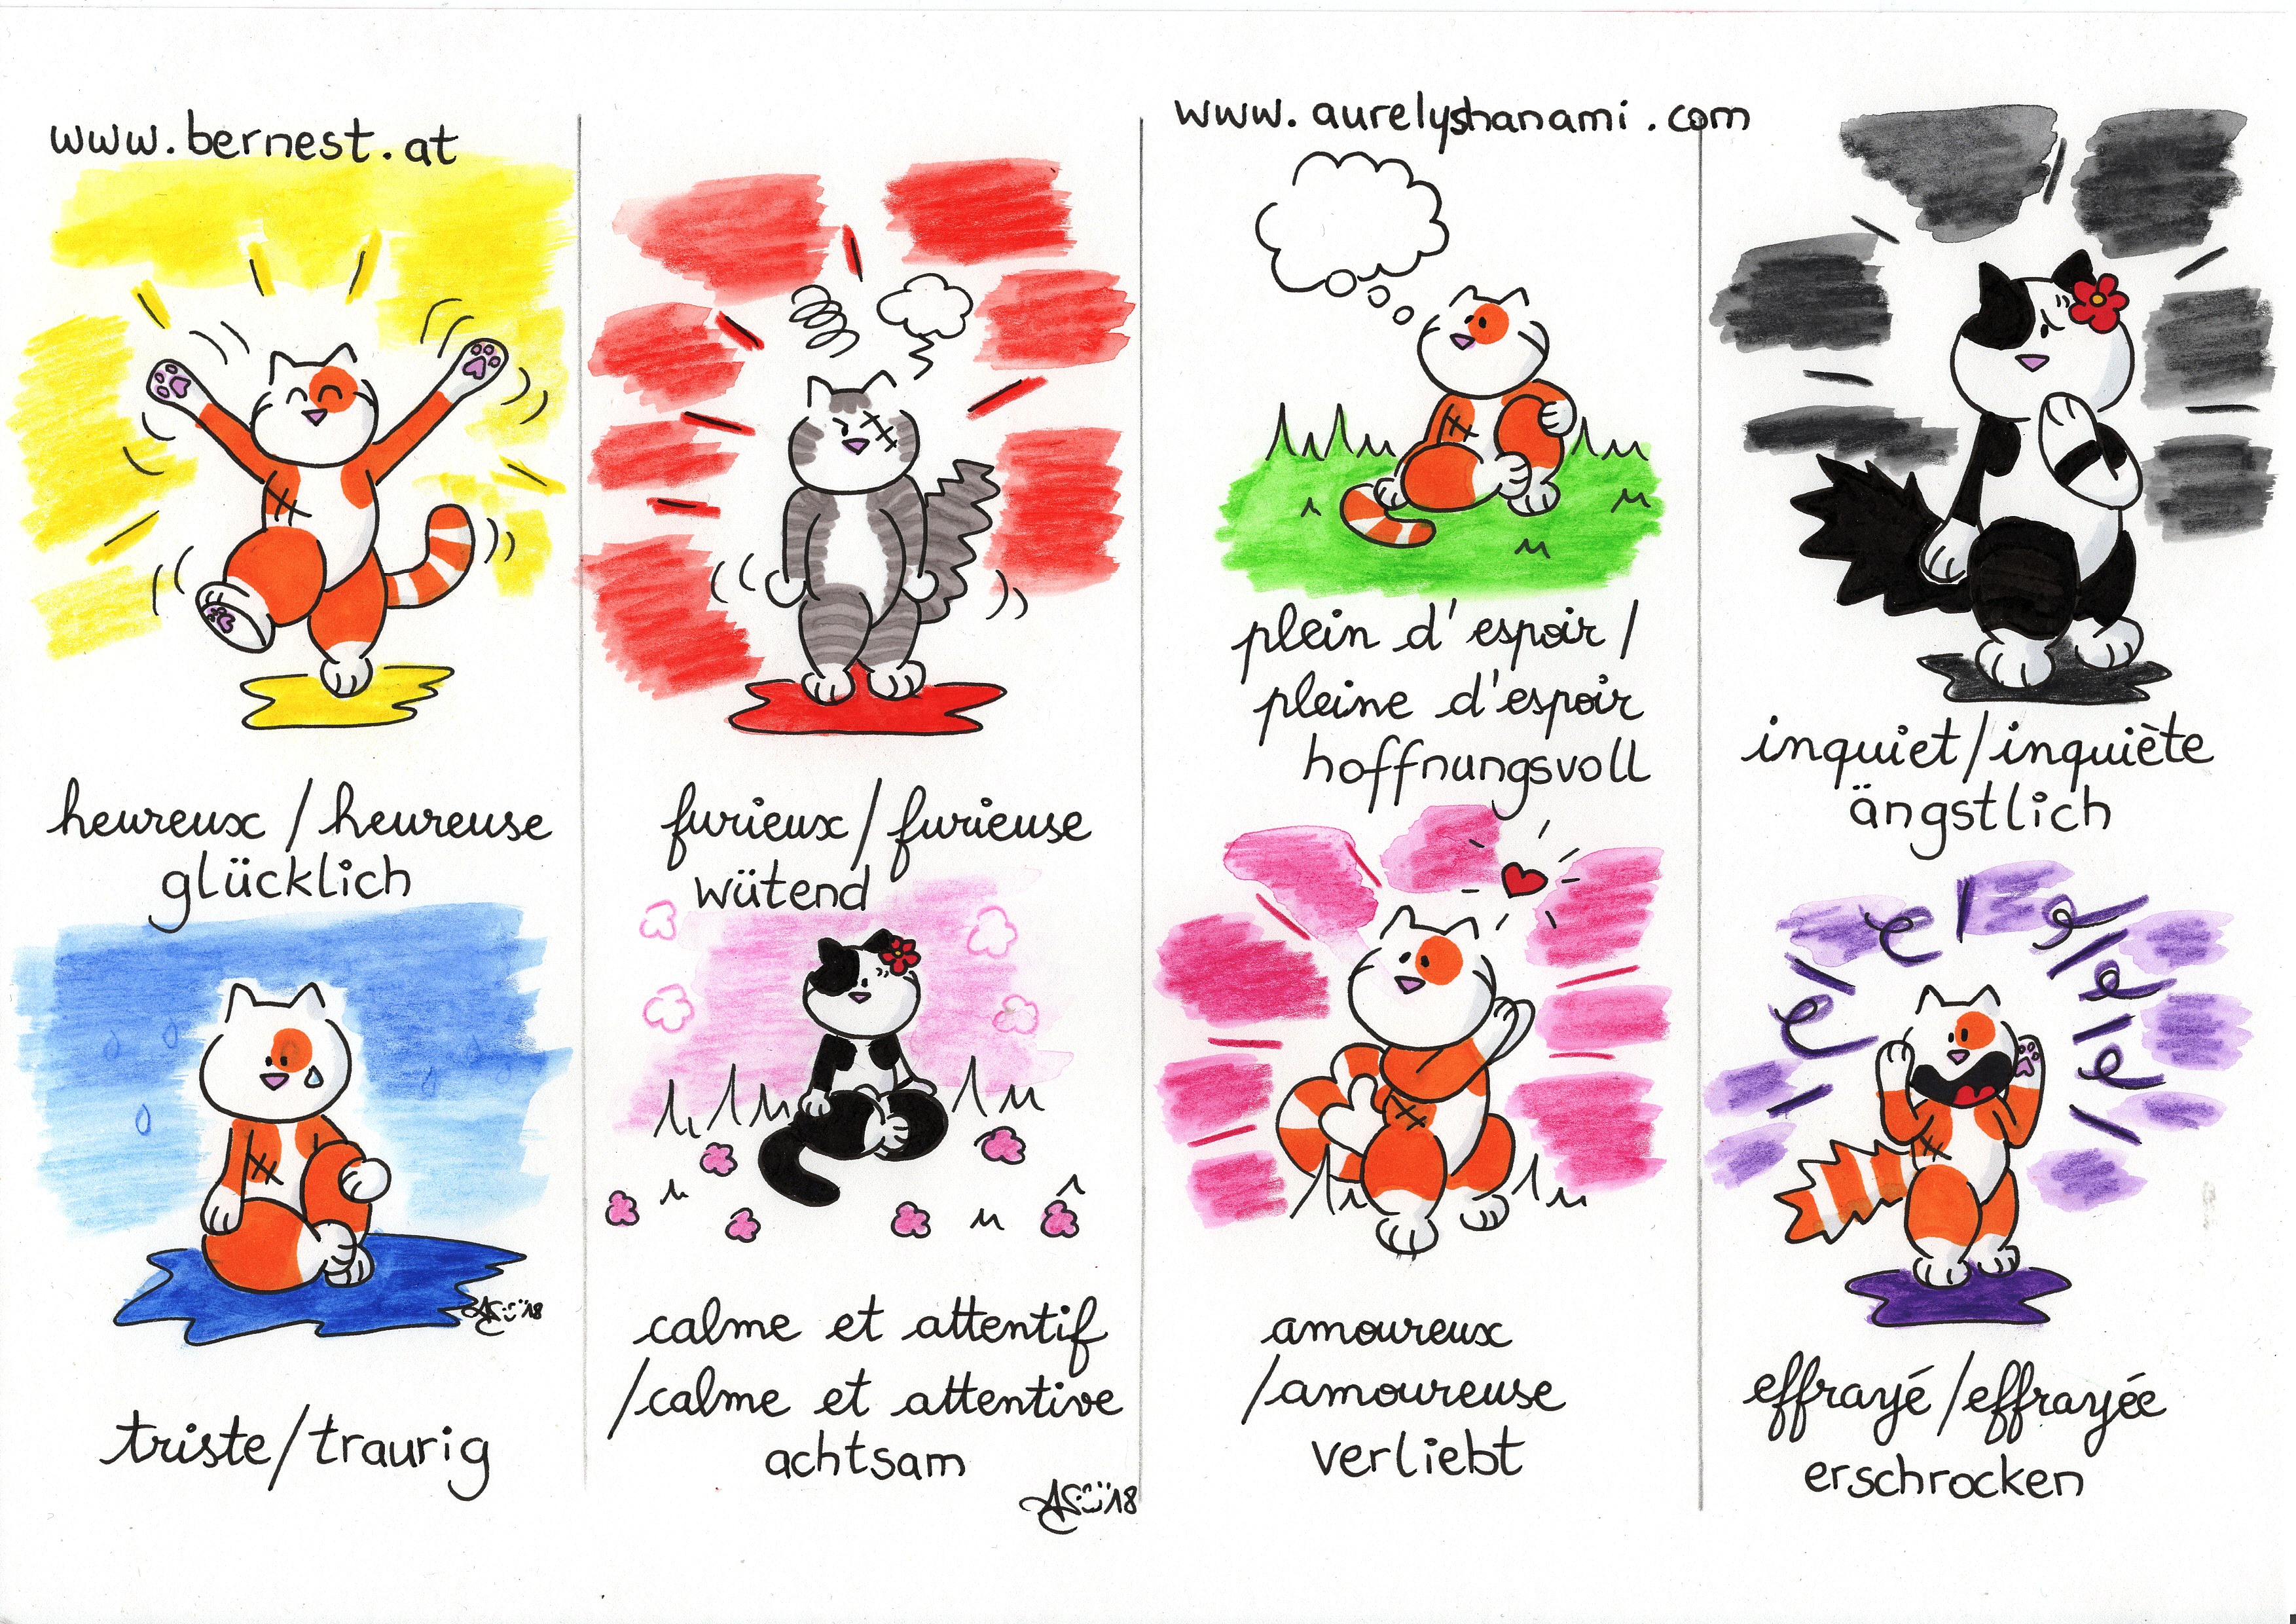 www.bernest.at
heureux/heureuse
glücklich
triste/traurig
furieux/furieuse
wütend
calme et attentif
/calme et attentive
achtsam
www.aurelyshanami.com
plein d'espoir/
pleine d'espoir
hoffnungsvoll
amoureux
/amoureuse
verliebt
inquiet/inquiète
ängstlich
effrayé/effrayée
erschrocken